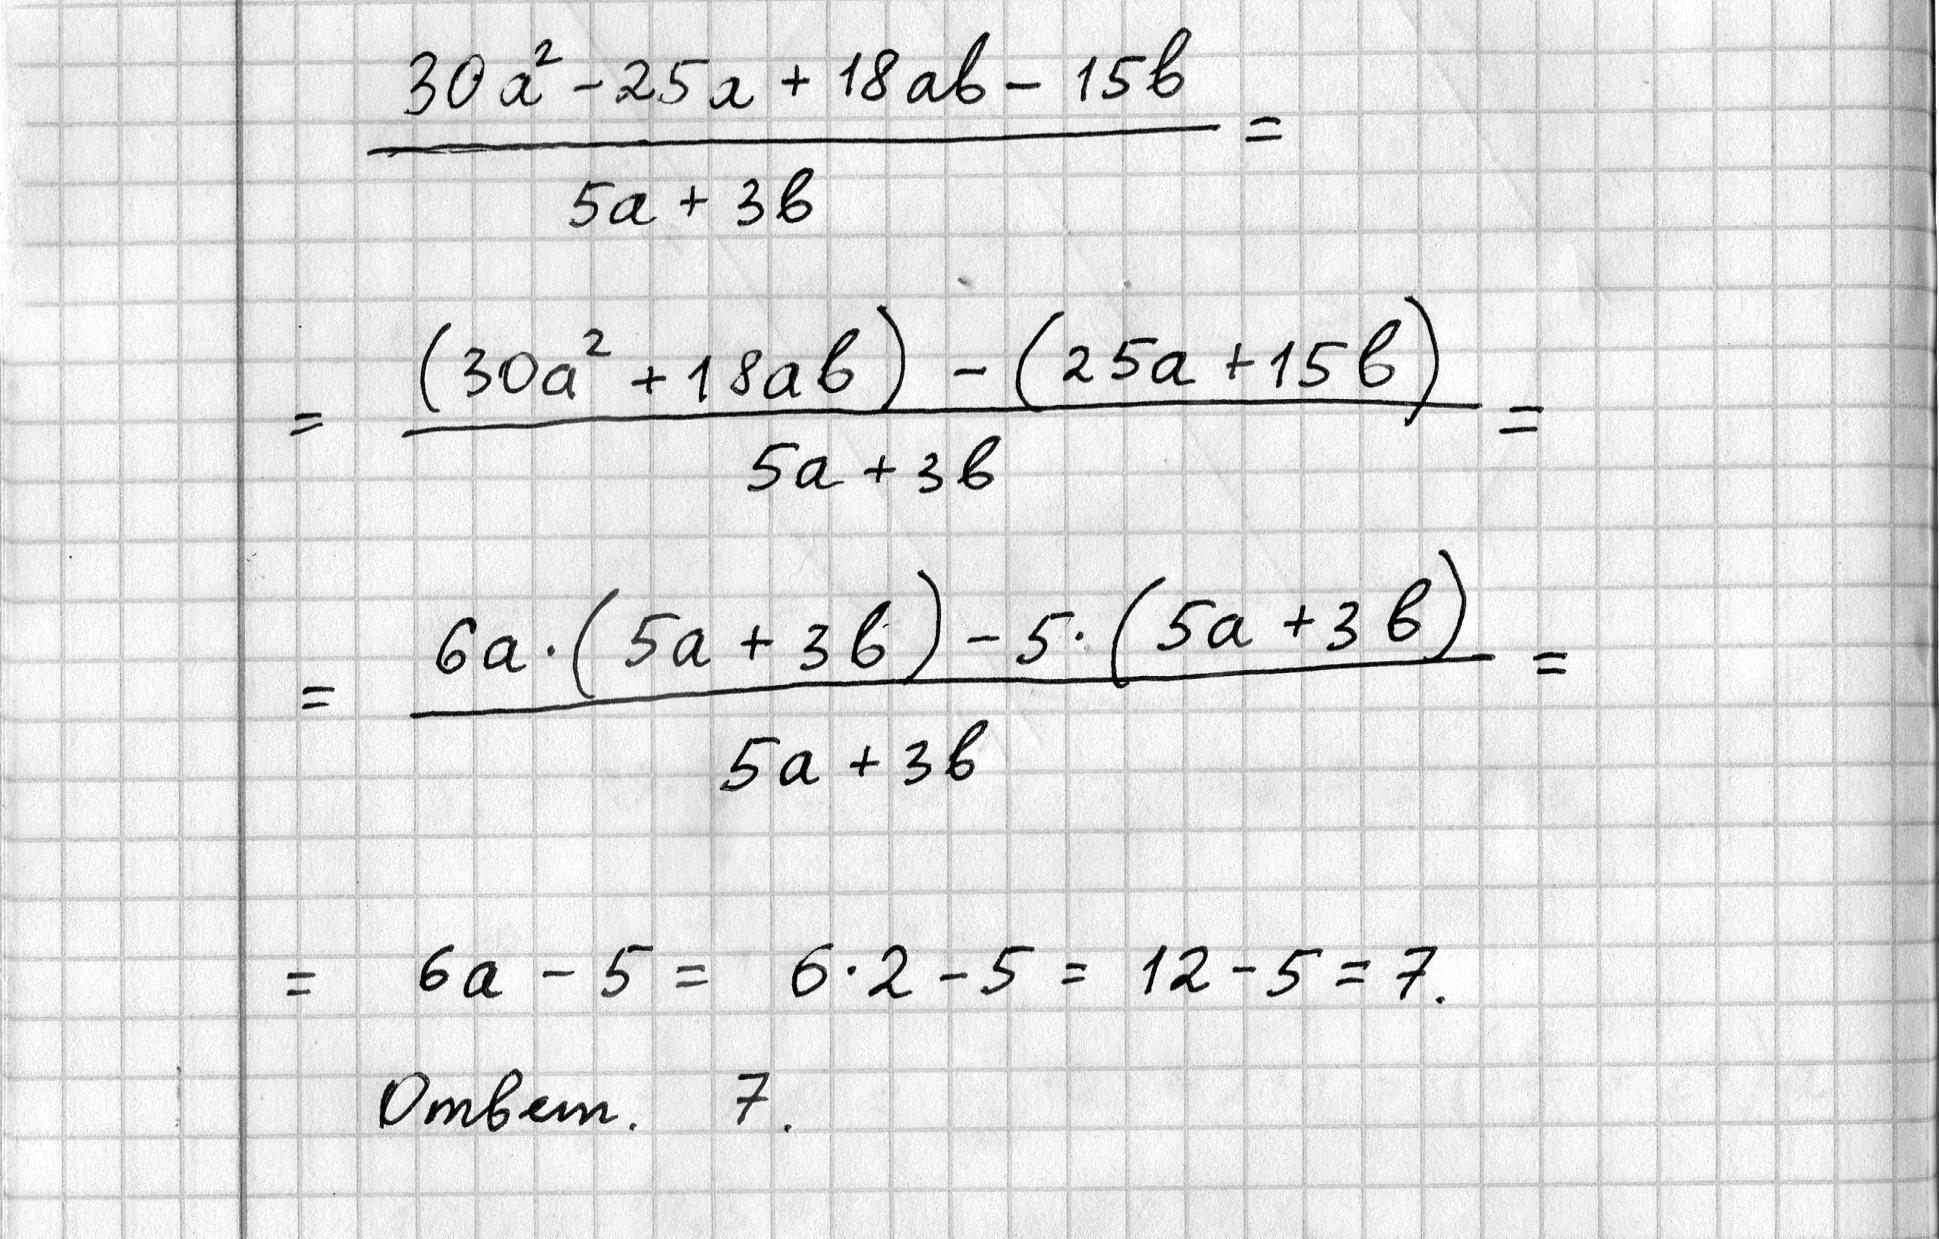 30a² - 25a + 18ab - 15b
=
5a + 3b
(30a² + 18ab) - (25a + 15b)
= =
5a + 3b
6a · (5a + 3b) - 5 · (5a + 3b)
= =
5a + 3b
= 6a - 5 = 6 · 2 - 5 = 12 - 5 = 7.
Ответ. 7.